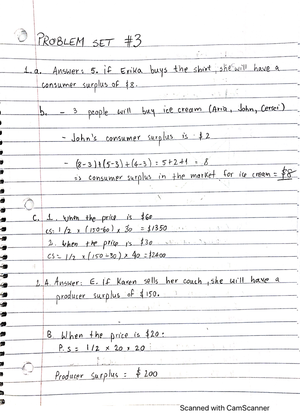 PROBLEM SET #3
1. a. Answer: 5. if Erika buys the shirt, she will have a
consumer surplus of $8.
b. - 3 people will buy ice cream (Aria, John, Cersei)
- John's consumer surplus is $2
- (8-3)+(5-3)+(4-3) = 5+2+1 = 8
=> consumer surplus in the market for ice cream = $8
C. 1. When the price is $60
CS: 1/2 x (150-60) x 30 = $1350
2. When the price is $30
CS = 1/2 x (150-30) x 40 = $2400
2. A. Answer: E. If Karen sells her couch, she will have a
producer surplus of $150.
B. When the price is $20:
P.S = 1/2 x 20 x 20
Producer surplus = $200
Scanned with CamScanner